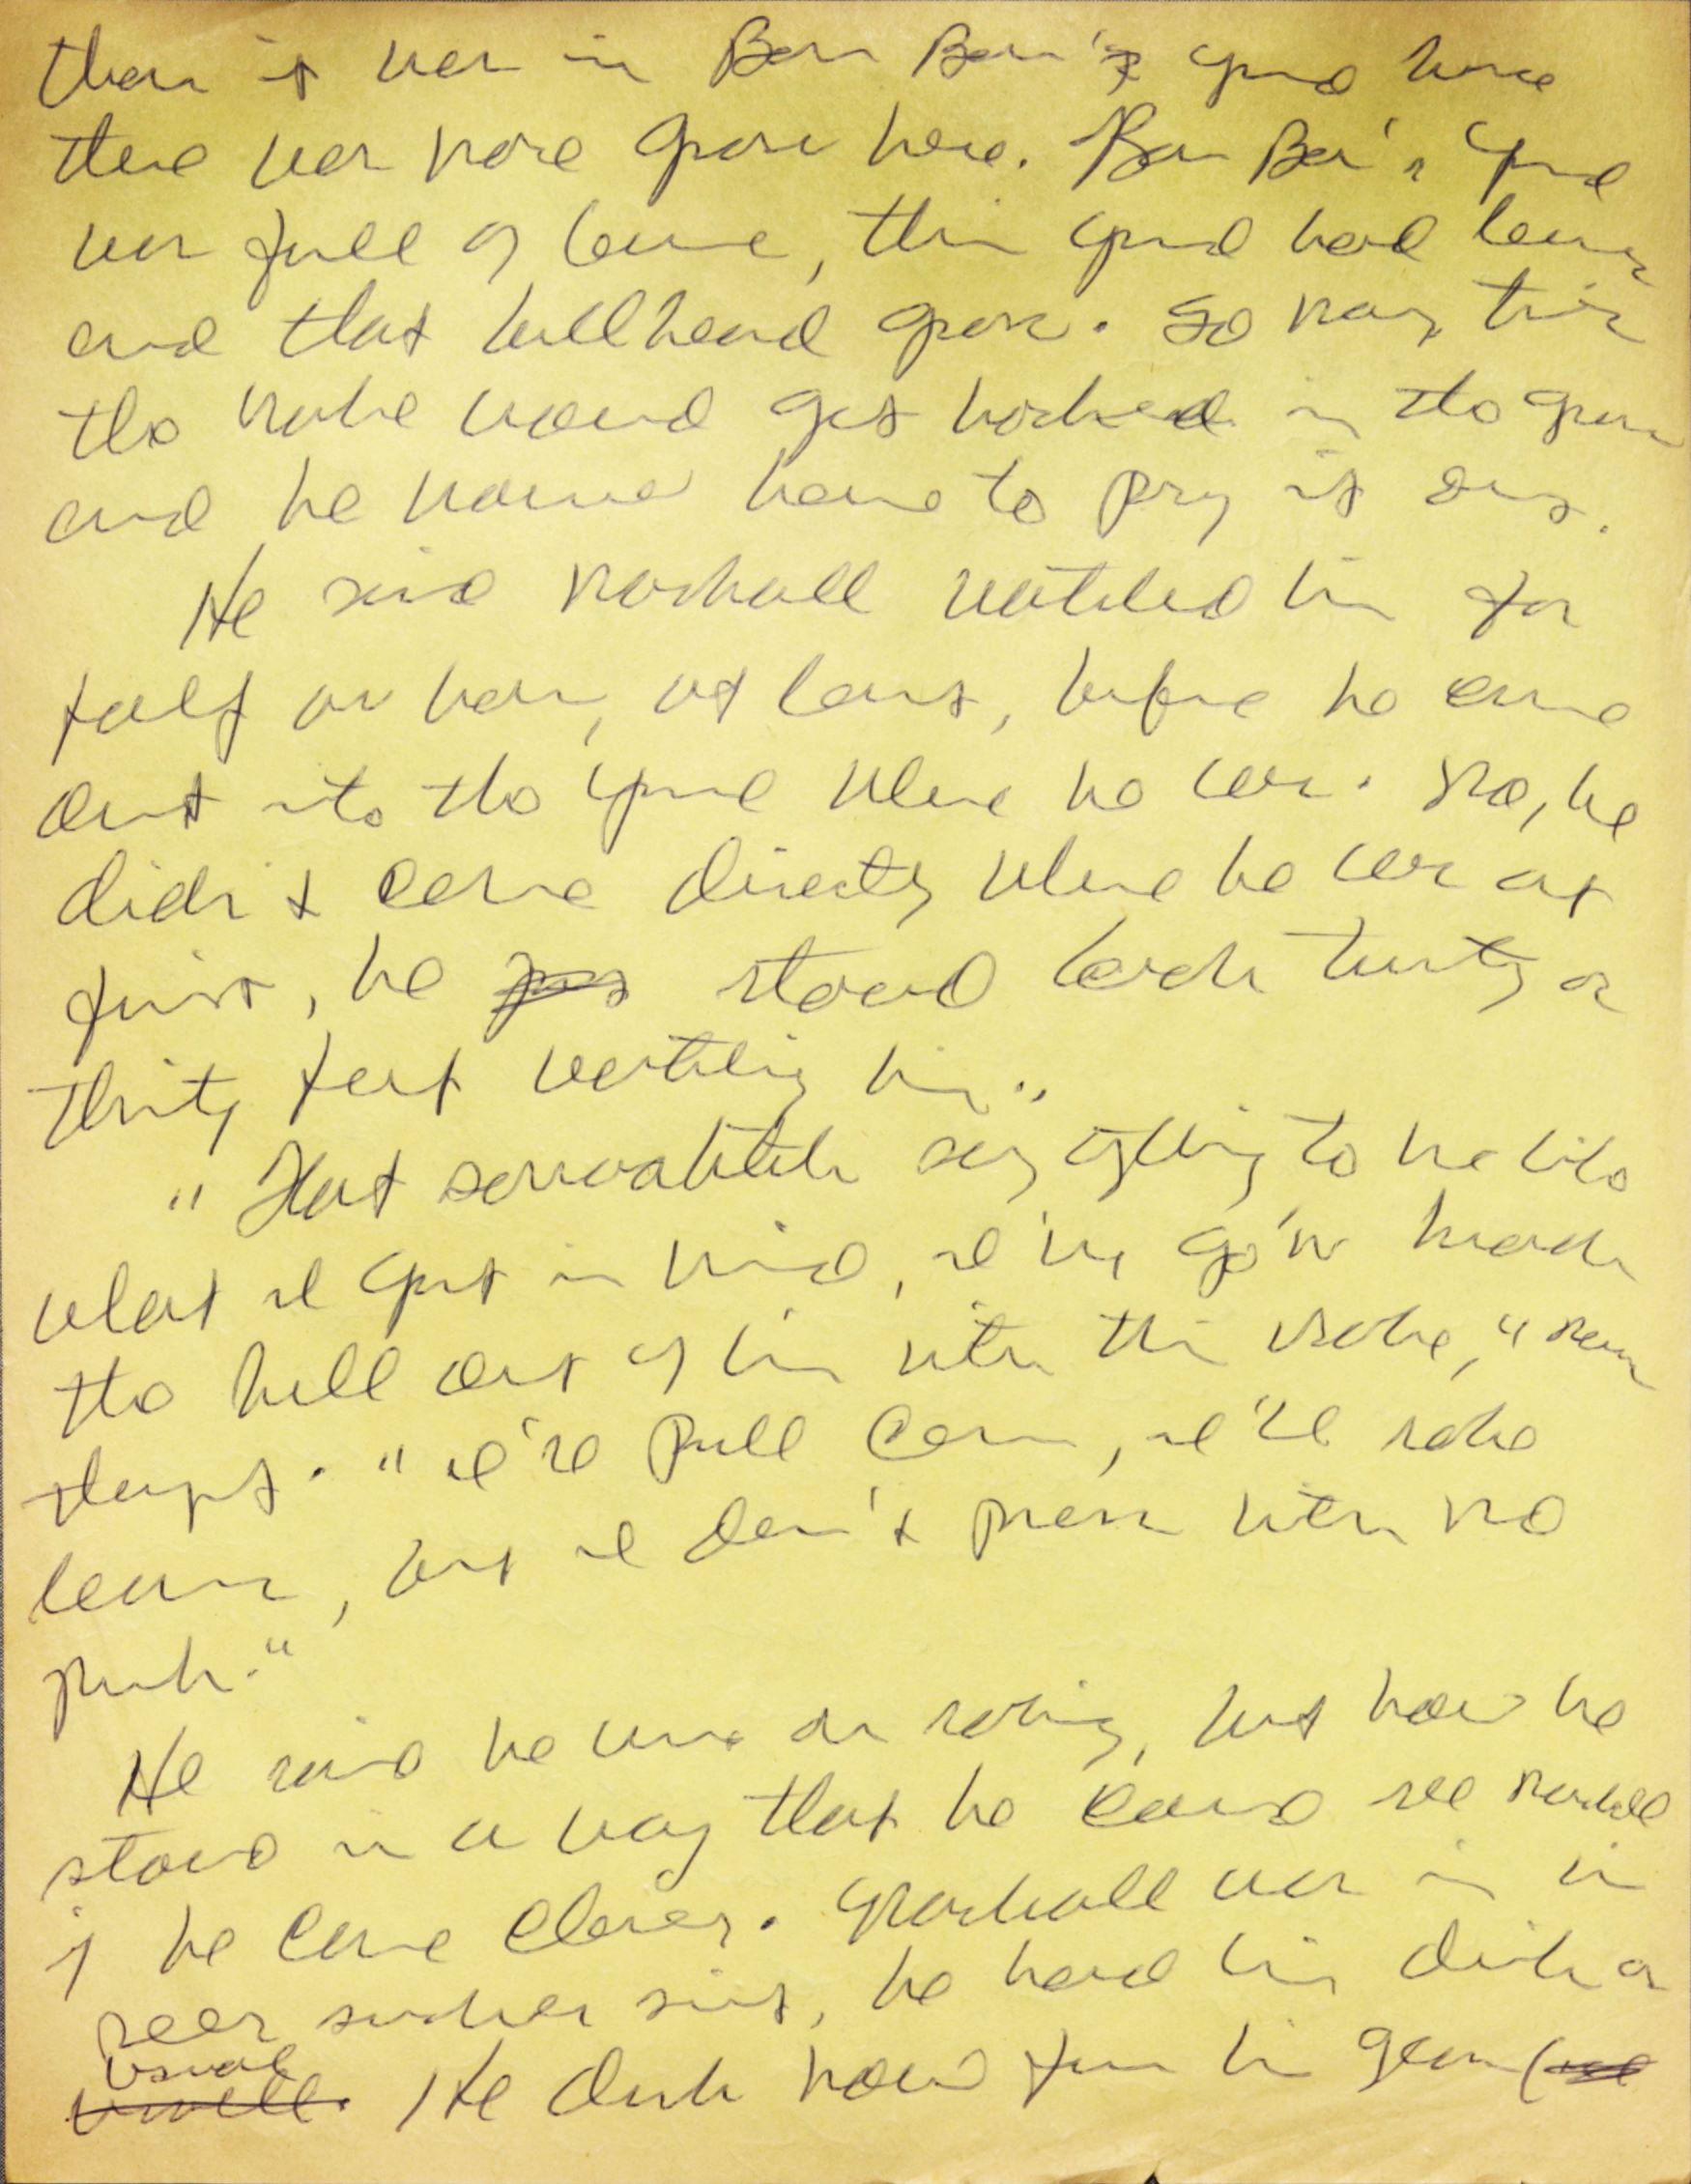 than it was in Bon Bon's yard since
there was more grass here. Bon Bon's yard
was full of leaves, this yard had leaves
and that hellhound grass. So many times
the rake would get hooked in the grass
and he would have to pry it out.
He said Marshall watched him for
half an hour, at least, before he came
out into the yard where he was. No, he
didn't come directly where he was at
first, he stood back twenty or
thirty feet watching him.
"That sonnovabitch say anything to me like
what I got in mind, I'm go'n knock
the hell out of him with this rake," Marcus
thought. "I'll pull corn, I'll rake
leaves, but I don't mess with no
punk."
He said he went on raking, but now he
stood in a way that he could see Marshall
if he came closer. Marshall was in his
seersucker suit, he had his drink as
usual. He drank now from his glass